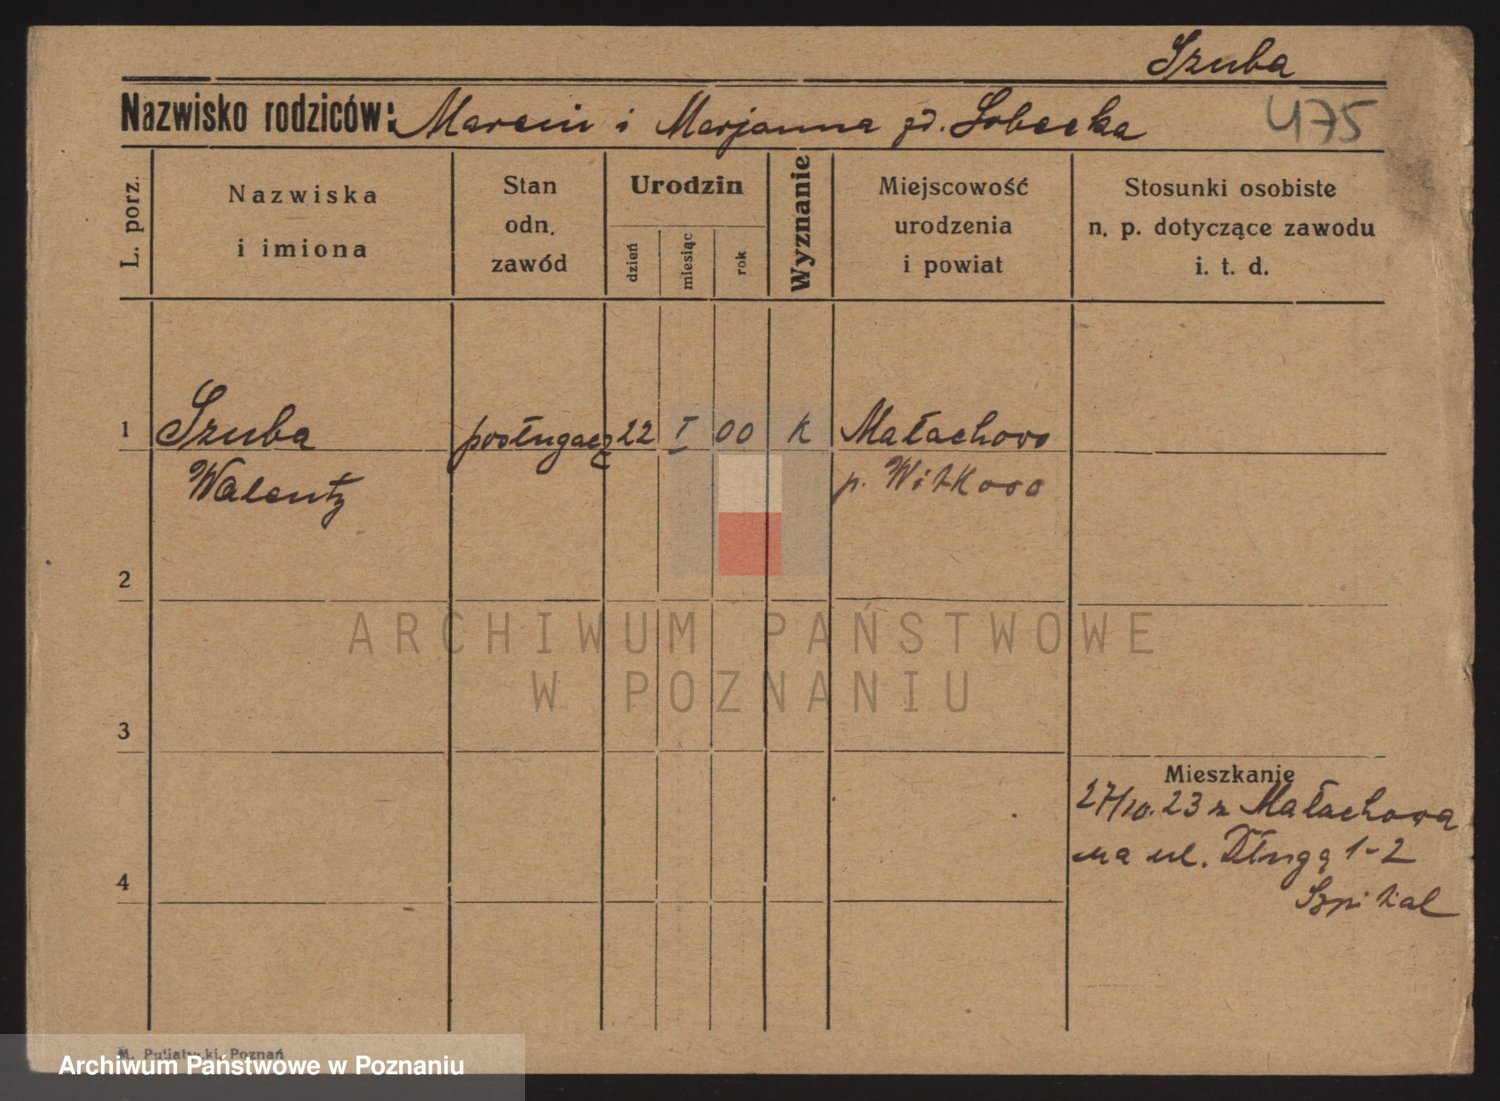 Szuba
Nazwisko rodziców: Marcin i Marjanna zd. Sobecka
475
L. porz.
Nazwiska
i imiona
Stan
odn.
zawód
Urodzin
dzień
miesiąc
rok
Wyznanie
Miejscowość
urodzenia
i powiat
Stosunki osobiste
n. p. dotyczące zawodu
i. t. d.
1 Szuba posługacz 22 I 00 K Małachowo
Walenty p. Witkowo
2
ARCHIWUM PAŃSTWOWE
W POZNANIU
3
Mieszkanie
27/10.23 z Małachowa
na ul. Długą 1-2
Szpital
4
M. Poznań
Archiwum Państwowe w Poznaniu